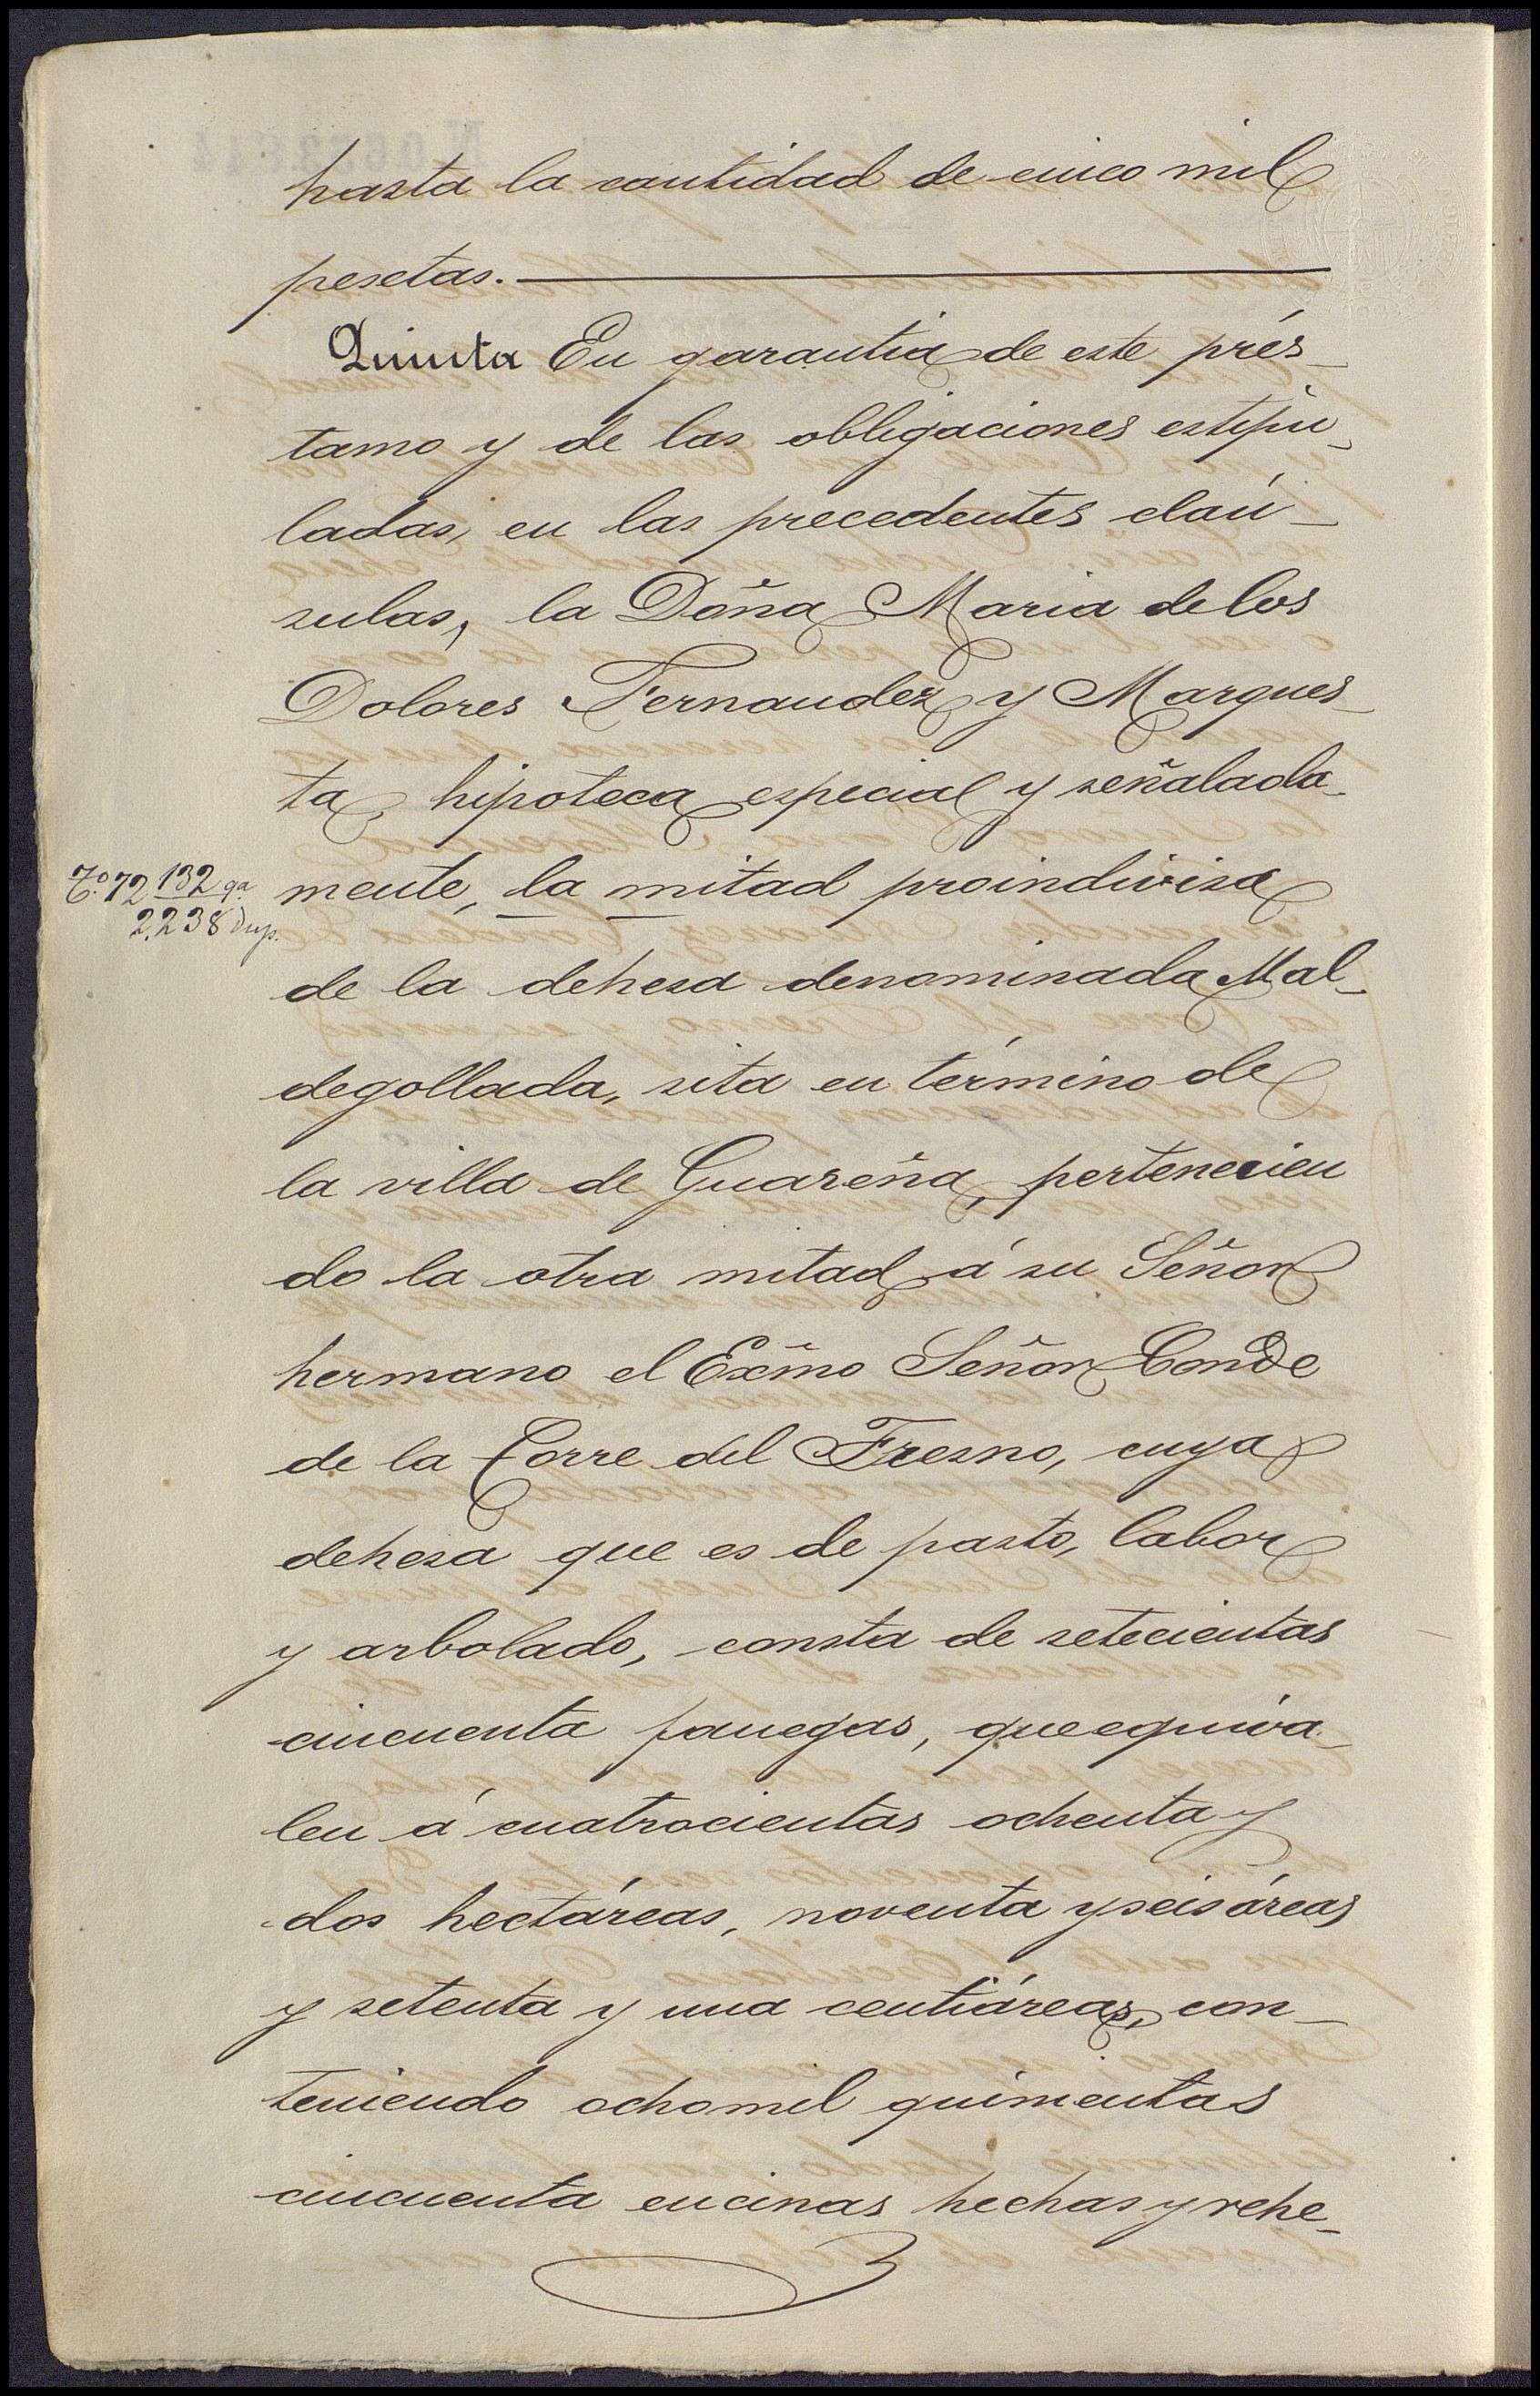 hasta la cantidad de cinco mil
pesetas.
Quinta En garantia de este prés-
tamo y de las obligaciones estipu-
ladas, en las precedentes claú-
sulas, la Doña Maria de los
Dolores Fernandez y Marques-
ta, hipoteca especial y señalada-
Tº 72 132 ga
2.238 Dup.
mente, la mitad proindivisa
de la dehesa denominada Mal-
degollada, sita en término de
la villa de Guareña, pertenecien
do la otra mitad á su Señor
hermano el Exmo Señor Conde
de la Torre del Fresno, cuya
dehesa que es de pasto, labor
y arbolado, consta de setecientas
cincuenta fanegas, que equiva-
len á cuatrocientas ochenta y
dos hectáreas, noventa y seis áreas
y setenta y una centiáreas, con-
teniendo ocho mil quinientas
cincuenta encinas hechas y rehe-